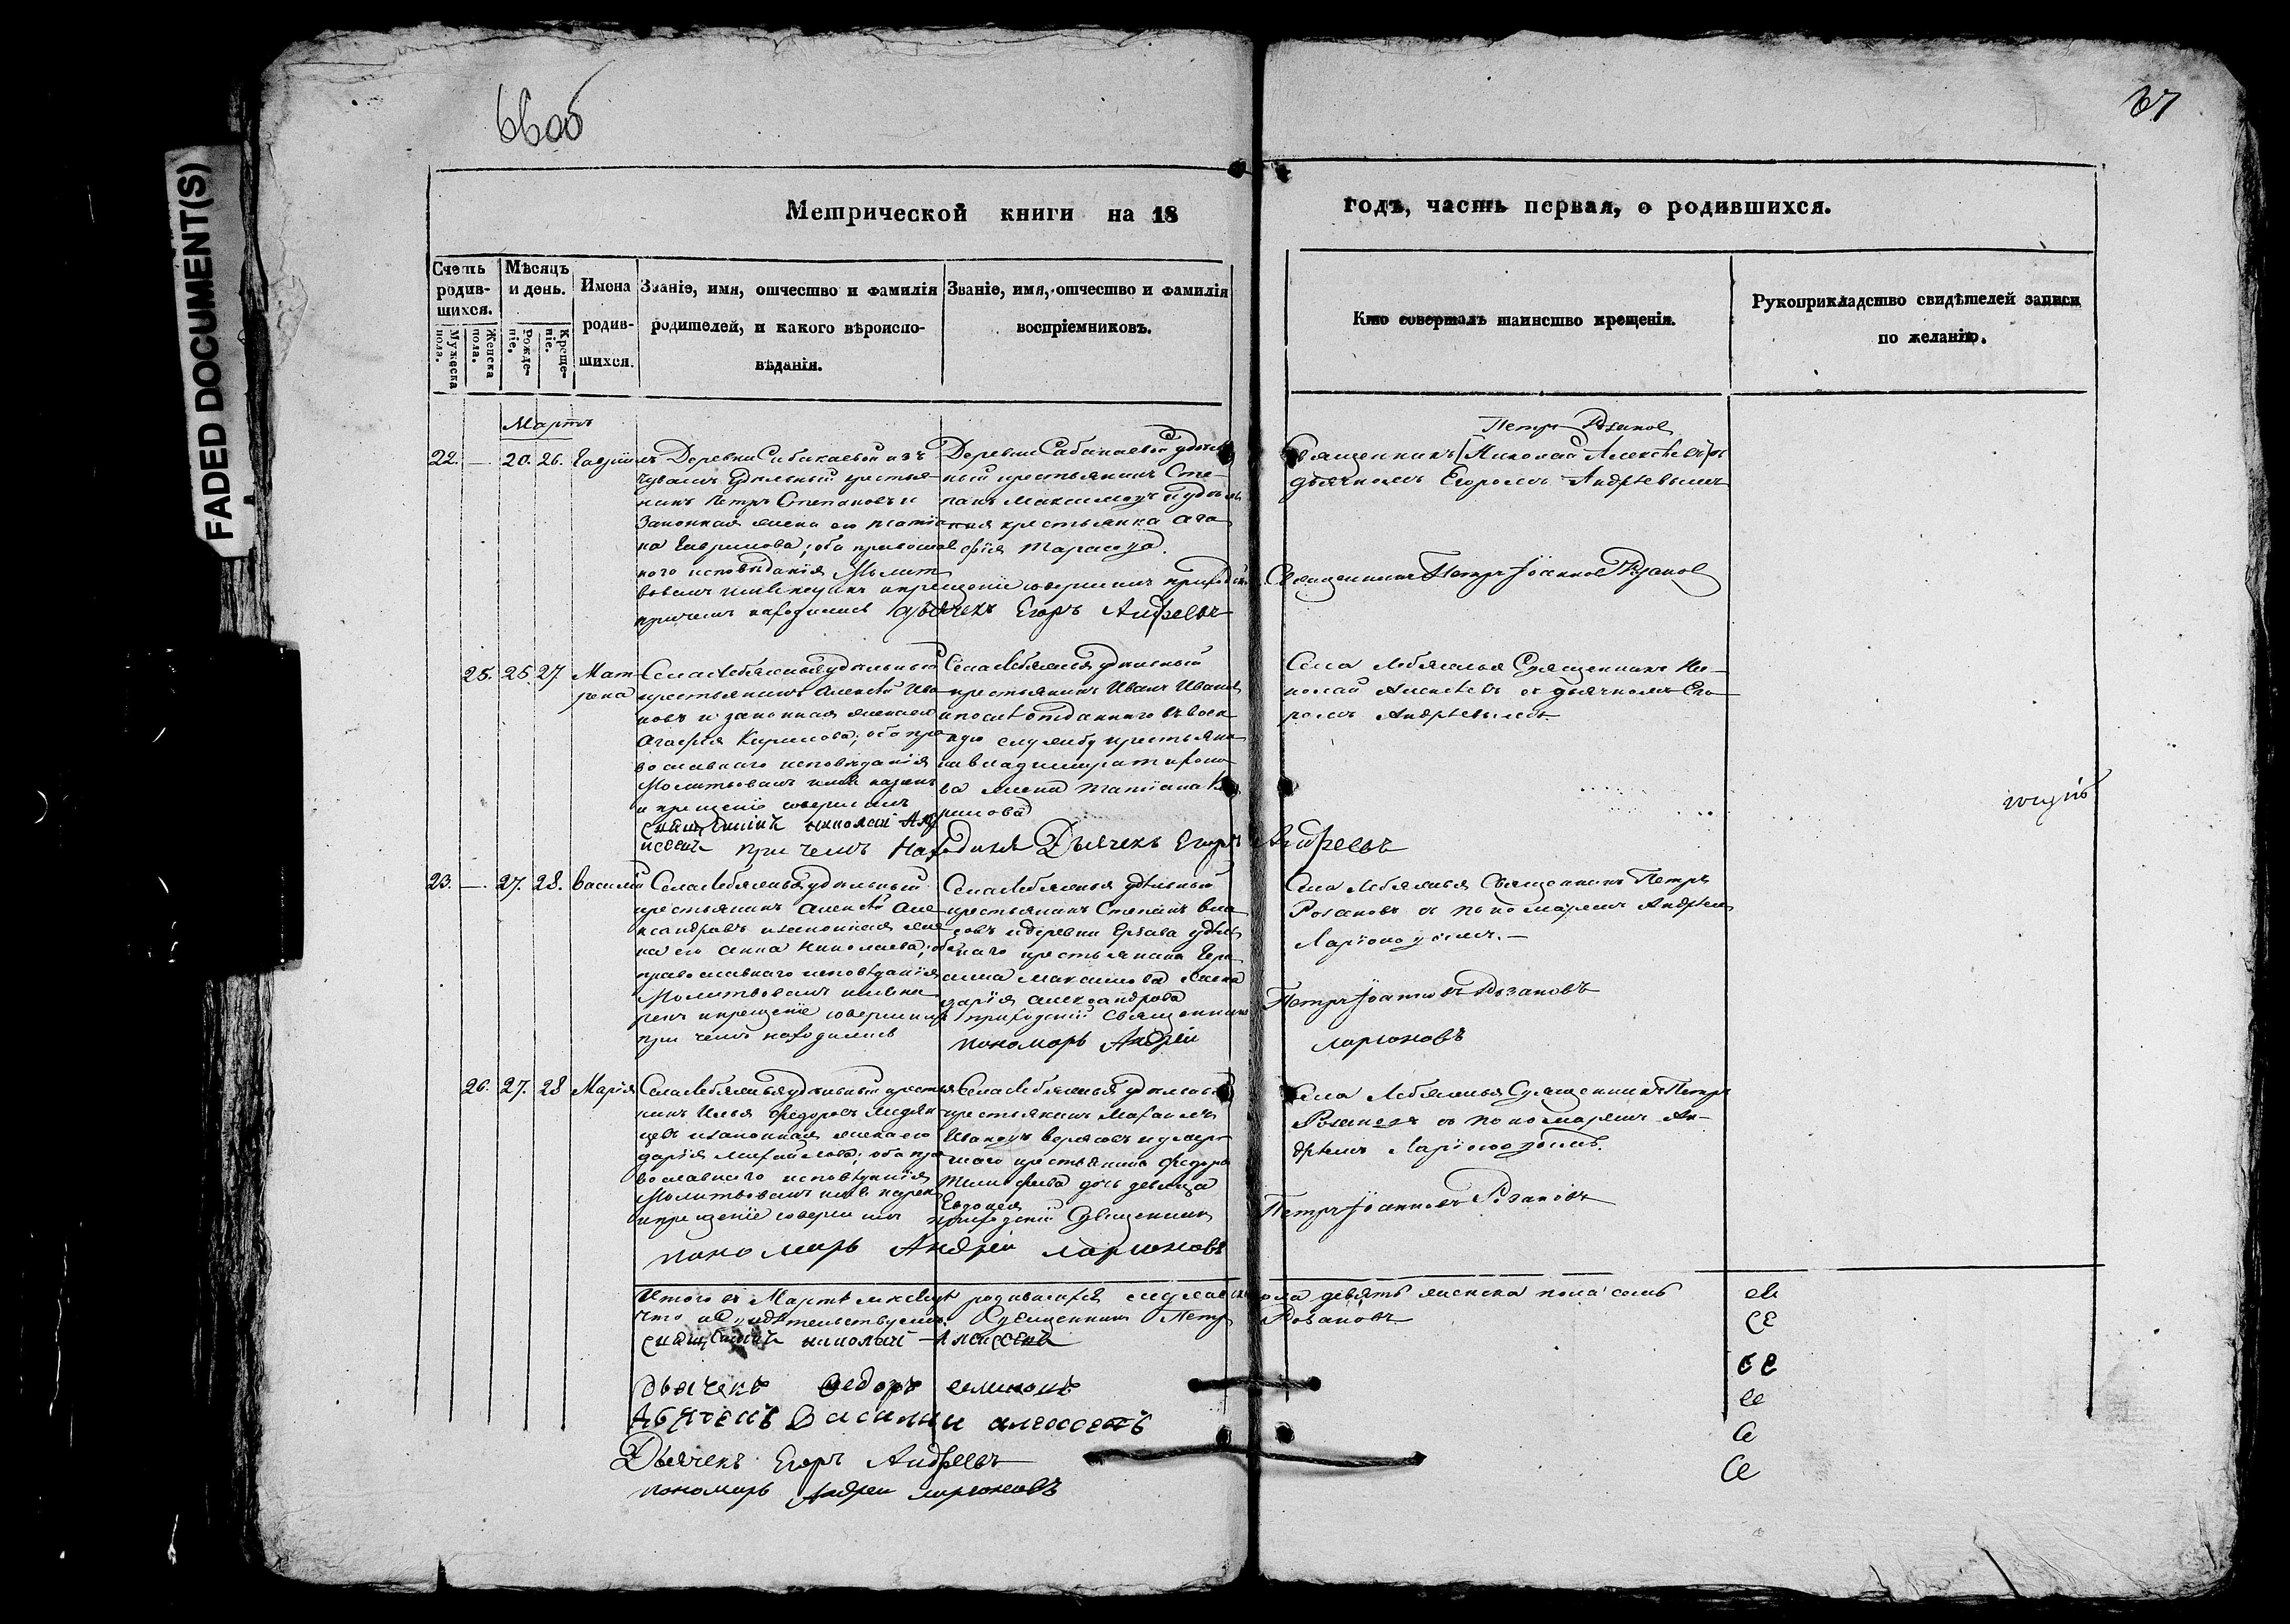 66об
67
FADED DOCUMENT(S)
Метрической книги на 18
годъ, часть первая, о родившихся.
Счетъ родив- шихся.
Мужеска пола.
Женска пола.
Мѣсяцъ и день.
Рожде- ніе.
Креще- ніе.
Имена родив- шихся.
Званіе, имя, отчество и фамилія
родителей, и какого вѣроиспо-
вѣданія.
Званіе, имя, отчество и фамилія
воспріемниковъ.
Кто совершалъ таинство крещенія.
Рукоприкладство свидѣтелей записи
по желанію.
Мартъ
22. — 20. 26. Гавріилъ
Деревни Сабакаевой изъ
чувашъ удѣльный крестья-
нинъ Петръ Степановъ и
законная жена его Татiа-
на Гаврилова; оба православ
ного исповѣданія Молит
вовалъ имя нарекъ и крещеніе совершилъ приходскій
причемъ находился дьячекъ Егоръ Андреевъ
Деревни Сабакаевой удѣль
ный крестьянинъ Сте-
панъ Максимовъ и удѣль
ная крестьянка Ага
фія Тарасова.
Петръ Розанов
Священникъ Николай Алексѣевъ съ
дьячкомъ Егоромъ Андрѣевымъ
Священникъ Петръ Іоанновъ Розанов
25. 25. 27. Мат рона
Села Лебяжья удѣльный
крестьянинъ Алексѣй Ива
новъ и законная жена его
Агафия Кирилова; оба пра
вославнаго исповѣданія
Молитвовалъ имя нарекъ
и крещеніе совершилъ
священникъ николай Але
ксеевъ при чемъ находился Дьячекъ Егоръ Андреевъ
Села Лебяжья удѣльный
крестьянинъ Иванъ Иванов
и после отданнаго въ воен
ную службу крестьяни
на
ва жена Татiана Ки
рилова
Села Лебяжья Священникъ Ни-
колай Алексѣевъ съ дьячкомъ Его-
ромъ Андрѣевымъ
23. — 27. 28. Василій
Села Лебяжья удѣльный
крестьянинъ Алексѣй Але
ксандровъ и законная же
на его Анна Николаева; оба
православнаго исповѣданія
Молитвовалъ имя на
рекъ и крещеніе совершилъ приходскій Священникъ
при чемъ находились пономарь Андрей
Села Лебяжья удѣльный
крестьянинъ Степанъ Вла
совъ и деревни удѣль
наго крестьянина Гера
сима Максимова жена
Дарія Александрова
Села Лебяжья Священникъ Петръ
Розановъ съ пономаремъ Андрѣем
Ларіоновымъ.—
Петръ Іоанновъ Розановъ
ларионовъ
26. 27. 28 Марія
Села Лебяжья удѣльный крестья
нинъ Илья Федоровъ Медян
цевъ и законная жена его
Дарія Михайлова; оба пра
вославнаго исповѣданія
Молитвовалъ имя нарек
и крещеніе совершилъ приходскій Священникъ
пономарь Андрей ларионовъ
Села Лебяжья удѣльный
крестьянинъ Михаилъ
Ивановъ и умер
шаго крестьянина Федора
Тимофеева дочь девица
Евдокея
Села Лебяжья Священникъ Петръ
Розановъ съ пономаремъ Ан-
дрѣемъ Ларіоновымъ.
Петръ Іоанновъ Розановъ
Итого въ Мартѣ мѣсяцѣ родившихся мужеска пола девять женска пола семь
Что и свидѣтельствуемъ. Священникъ Петръ Розановъ
священникъ николай Алексеевъ
дьячекъ федоръ семионовъ
дьячекъ Василий алексеевъ
Дьячекъ Егоръ Андреевъ
пономарь Андреи ларионовъ